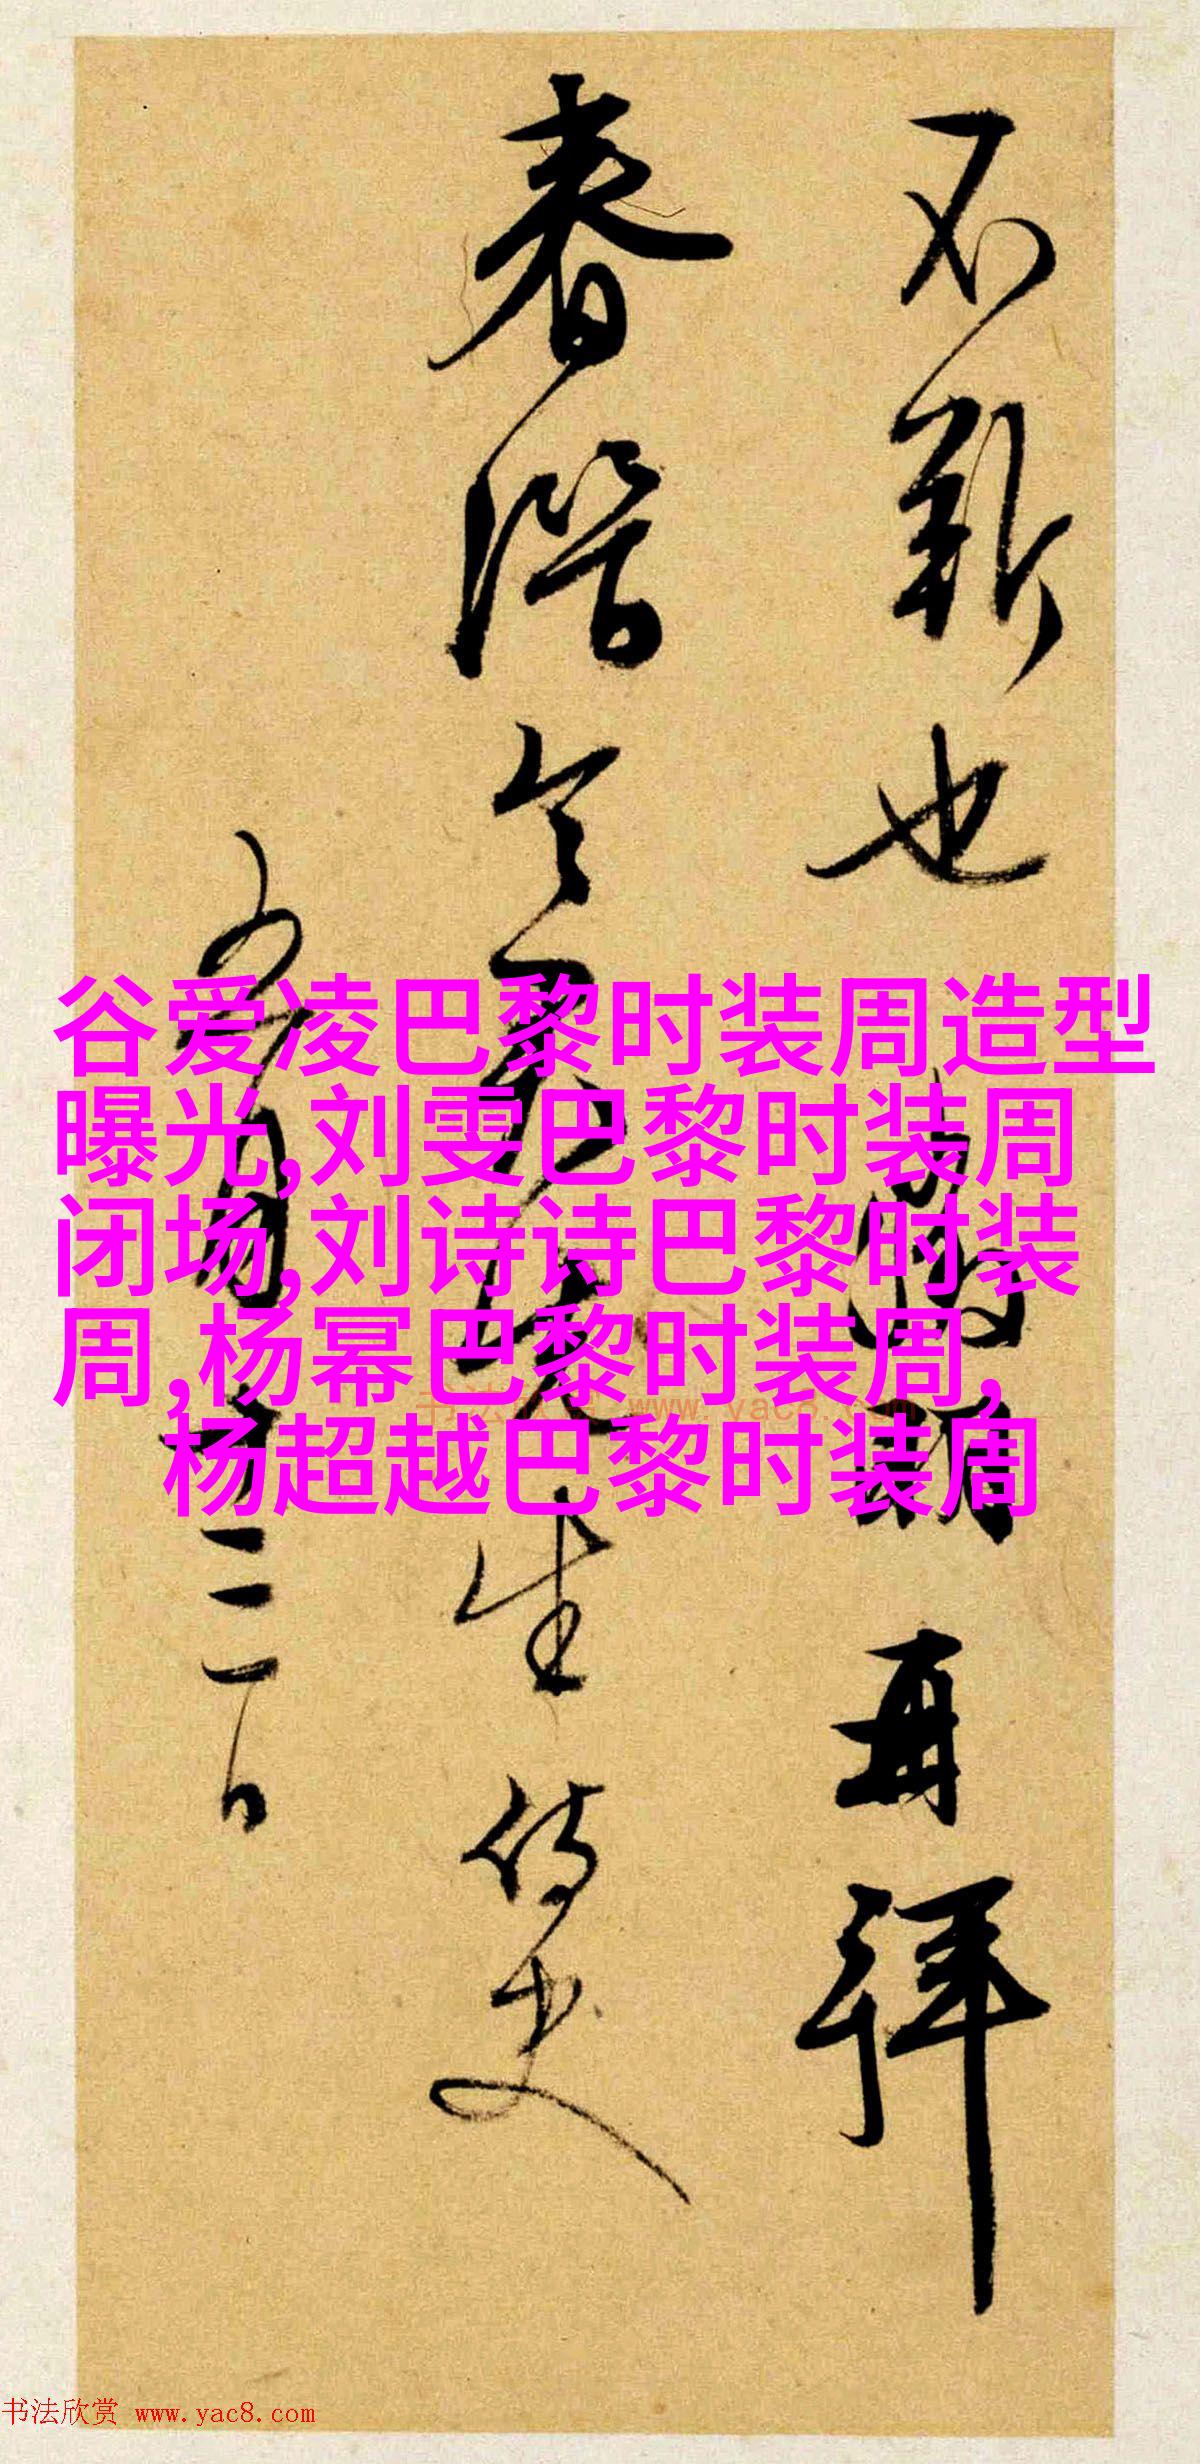 不斲也
再拜
春潛
先生侍史
五月十三日
谷爱凌巴黎时装周造型
曝光,刘雯巴黎时装周
闭场,刘诗诗巴黎时装
周,杨幂巴黎时装周,
杨超越巴黎时装周
书法欣赏 www.yac8.com
书法欣赏 www.yac8.com